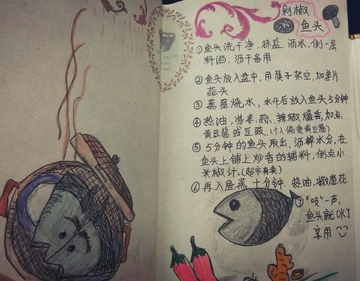 剁椒
鱼头
①鱼头洗干净,抹盐,洒水,倒一层
料酒,沥干备用
②鱼头放入盘中,用筷子架空,加姜片
蒜头
③蒸蒸烧水,水开后放入鱼头5分钟
④热油,将姜、蒜、辣椒爆香,加点
黄豆酱或豆豉,(个人偏爱黄豆酱)
⑤5分钟的鱼头取出,沥掉水分,在
鱼头上铺上炒香的辅料,倒点小
米椒汁.(超市有卖)
⑥再入屉蒸十分钟,热油,撒葱花
⑦"吱"一声,
鱼头就OK了
享用